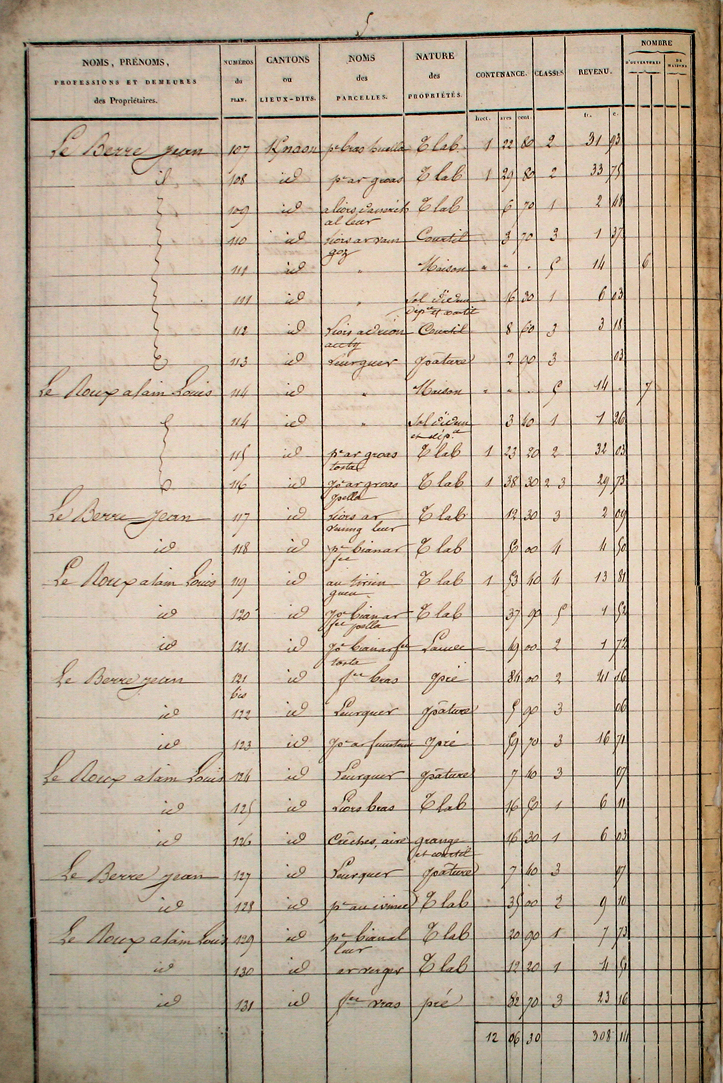 5
NOMS, PRÉNOMS, PROFESSIONS ET DEMEURES des Propriétaires. NUMÉROS du PLAN. CANTONS ou LIEUX-DITS. NOMS des PARCELLES. NATURE des PROPRIÉTÉS. CONTENANCE. CLASSES. REVENU. NOMBRE D'OUVERTURES DE MAISONS
hect. ares cent. fr. c.
Le Berre jean 107 pce bras huella T lab 1 22 80 2 31 93
id 108 id pce ar groas T lab 1 29 80 2 33 75
109 id T lab 6 70 1 2 48
al leur
110 id liors ar Courtil 3 70 3 1 37
goz
111 id " Maison " " . 5 14 6
111 id " Sol d'idem 16 30 1 6 03
dépce et courtil
112 id liors Courtil 8 60 3 3 18
113 id Leurguer pâture 2 90 3 03
Le Roux alain Louis 114 id " Maison " " . 5 14 . 7
114 id " Sol d'idem 3 40 1 1 26
et dépce
115 id pce ar groas T lab 1 23 20 2 32 03
tosta
116 id pce ar groas T lab 1 38 30 2 3 29 73
pella
Le Berre jean 117 id liors ar T lab 12 30 3 2 09
leur
id 118 id pce bian ar T lab 50 00 4 4 50
fce
Le Roux alain Louis 119 id T lab 1 53 40 4 13 81
id 120 id pce bian ar T lab 37 90 5 1 52
fce pella
id 121 id pce bian ar fce 49 00 2 1 72
tosta
Le Berre jean 121 id fce bras pré 84 00 2 41 16
bis
id 122 id Leurguer pâture 5 90 3 06
id 123 id pce ar funtum pré 59 70 3 16 71
Le Roux alain Louis 124 id Leurguer pâture 7 40 3 07
id 125 id Liors bras T lab 16 50 1 6 11
id 126 id Crêches, aire grange 16 30 1 6 03
et courtil
Le Berre jean 127 id Leurguer pâture 7 40 3 07
id 128 id T lab 35 00 2 9 10
Le Roux alain Louis 129 id pce bian el T lab 20 90 1 7 73
leur
id 130 id ar verger T lab 12 20 1 4 51
id 131 id fce vras pré 82 70 3 23 16
12 06 30 308 14